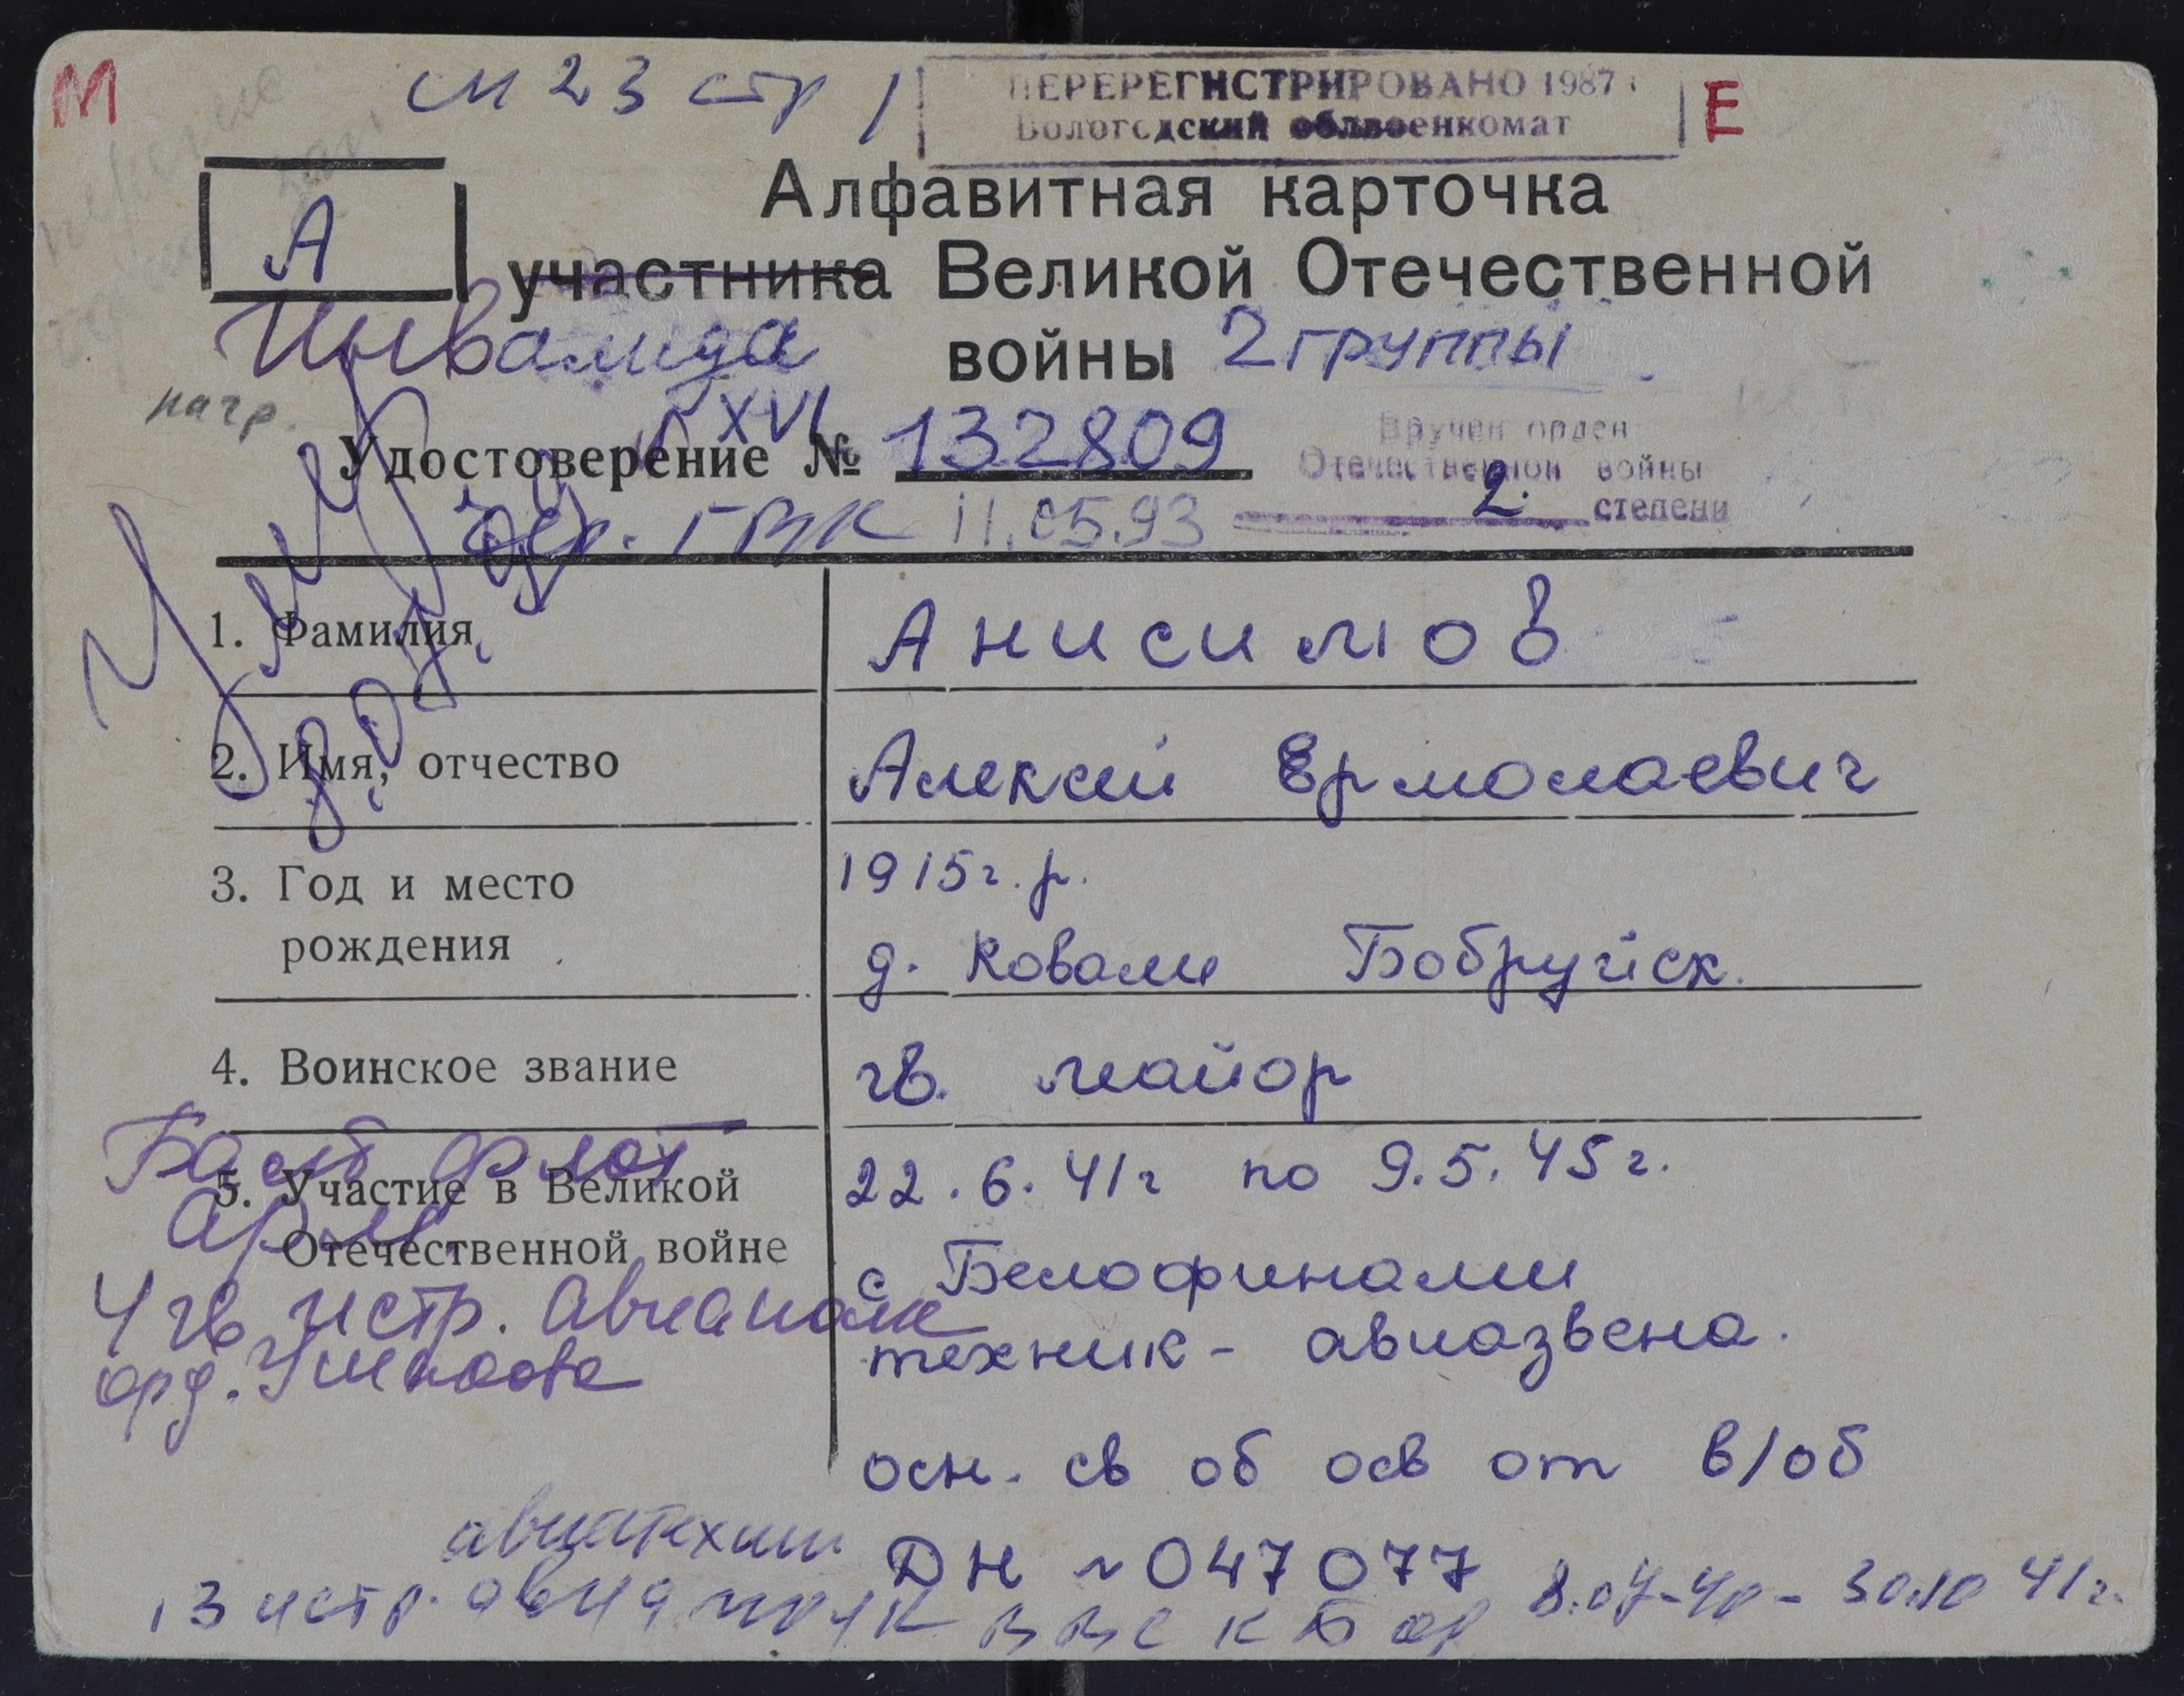 М см 23 стр
ПЕРЕРЕГИСТРИРОВАНО 1987 г
Вологодский облвоенкомат
Е
А
Алфавитная карточка
участника Великой Отечественной
Инвалида войны 2 группы
нагр.
XVI
Удостоверение № 132809
Вручен орден
Отечественной войны
2 степени
ГВК 11.05.93
Умер
1. Фамилия Анисимов
2. Имя, отчество Алексей Ермолаевич
3. Год и место 1915 г. р.
рождения д. Ковали Бобруйск.
4. Воинское звание гв. майор
Балт флот
5. Участие в Великой 22.6.41г по 9.5.45г.
Отечественной войне с Белофинами
4 гв истр. авиаполк
техник - авиазвена.
орд. Ушакова
осн. св об осв от в/об
авиатехник
ДН № 047077
13 истр. авиаполк ВВС КБФ 8.04-40 - 30.10 41г.